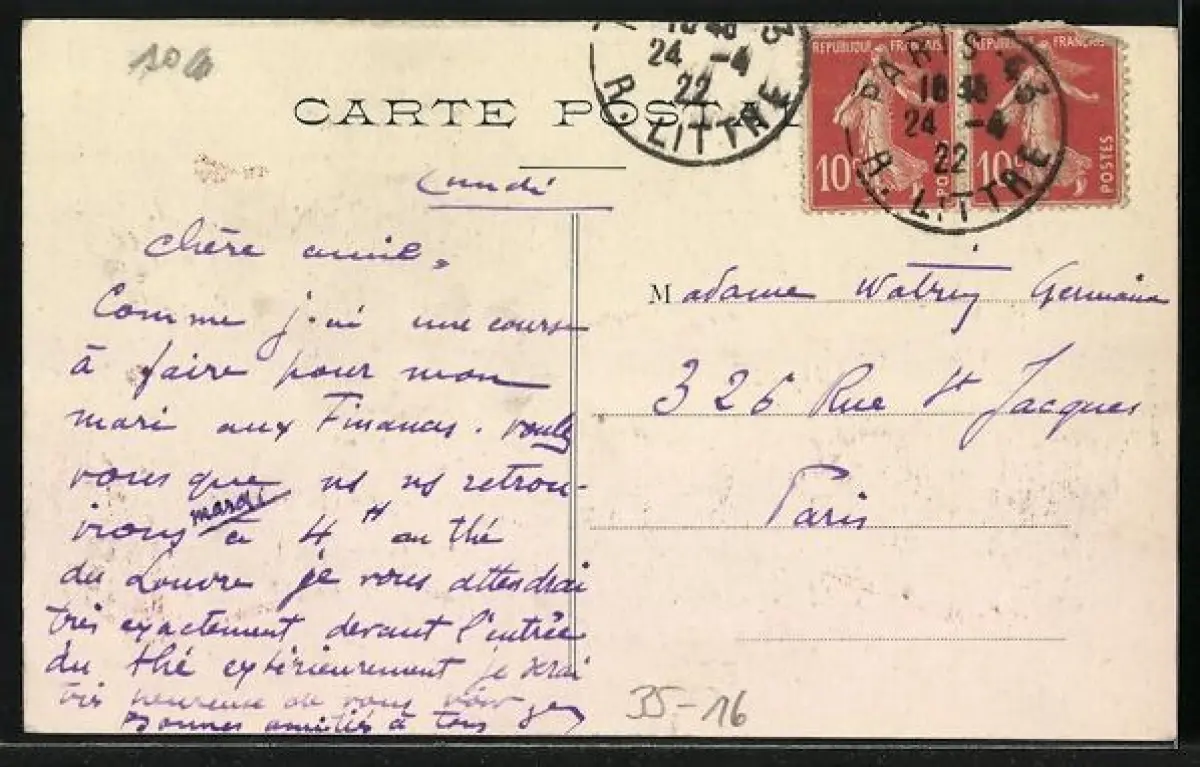 104
CARTE POSTA
18 45
24 -4
22
R. LITTRE
REPUBLIQUE FRANÇAISE
10c
POSTES
REPUBLIQUE FRANÇAISE
10c
POSTES
PARIS
18 45
24 -4
22
R. LITTRE
Lundi
Chère amie,
Comme j'ai une course
à faire pour mon
mari aux Finances. voulez
vous que ns ns retrou-
vions mardi à 4 H au thé
du Louvre je vous attendrai
très exactement devant l'entrée
du thé extérieurement je serai
très heureuse de vous voir
Bonnes amitiés à tous
Madame Germaine
326 Rue St Jacques
Paris
35-16